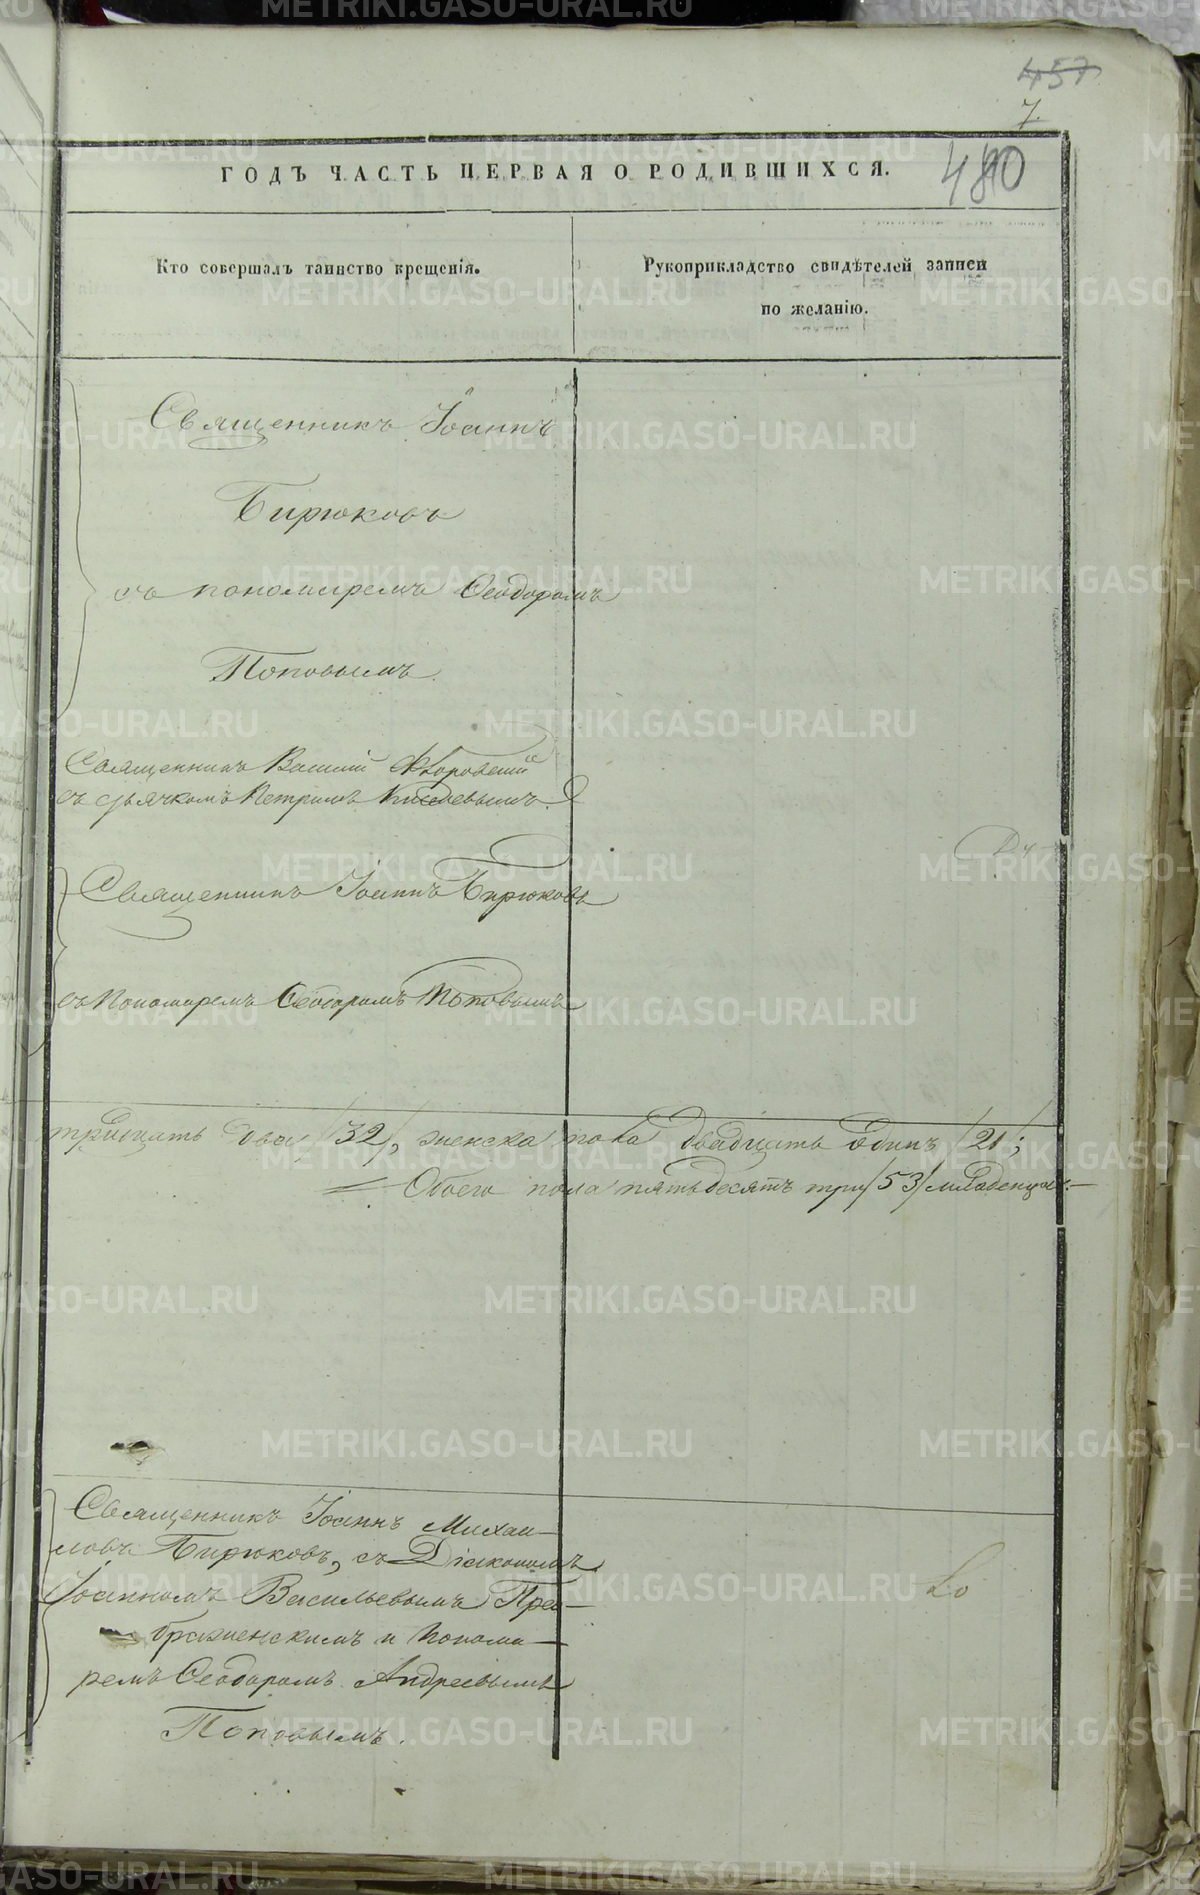 457
7.
480
ГОДЪ ЧАСТЬ ПЕРВАЯ О РОДИВШИХСЯ.
Кто совершалъ таинство крещенія.
Рукоприкладство свидѣтелей записи
по желанію.
Священникъ Іоаннъ
Бирюковъ
съ пономаремъ Ѳеодоромъ
Поповымъ.
Священникъ Василій Флоровскій
съ дьячкомъ Петромъ Киселевымъ.
Священникъ Іоаннъ Бирюковъ
съ Пономаремъ Ѳеодоромъ Поповымъ
тридцать два /32/, женска пола двадцать одинъ /21/;
Обоего пола пятьдесятъ три /53/ младенца.
Священникъ Іоаннъ Михаи-
ловъ Бирюковъ, съ Діакономъ
Іоанномъ Васильевымъ Прео-
браженскимъ и Понома-
ремъ Ѳеодоромъ Андреевымъ
Поповымъ.
METRIKI.GASO-URAL.RU